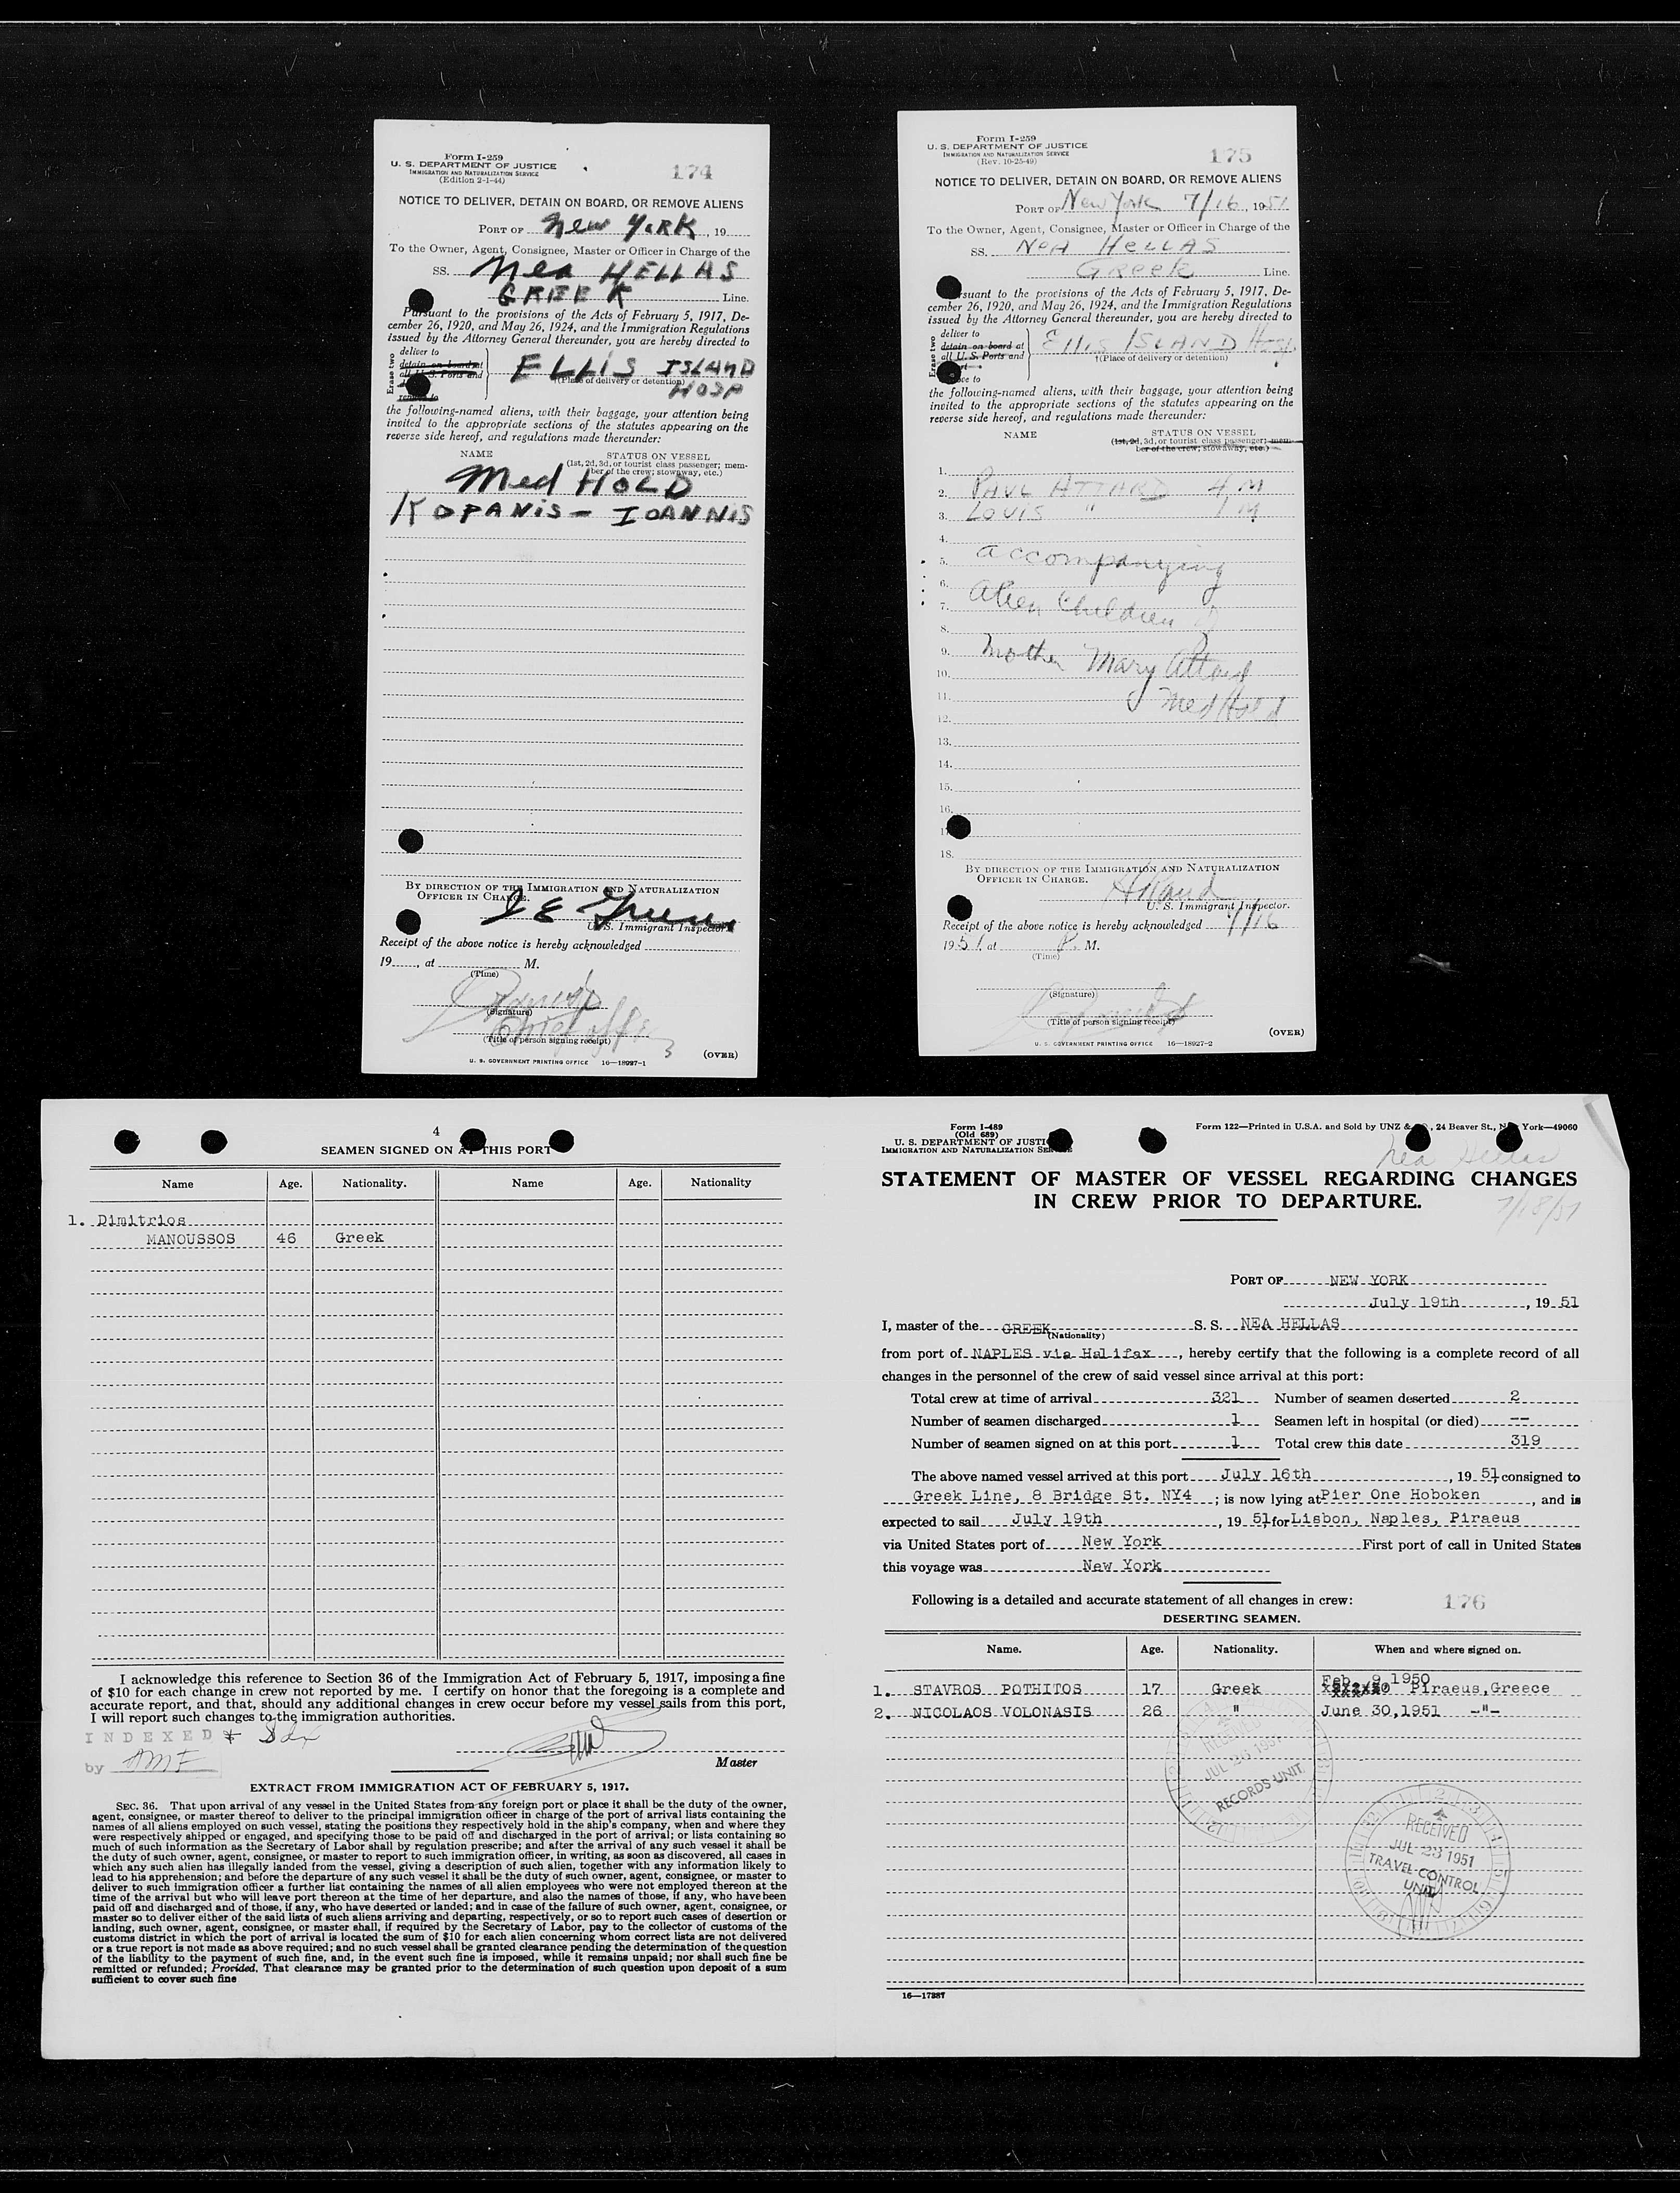 Form I-259
U. S. DEPARTMENT OF JUSTICE
IMMIGRATION AND NATURALIZATION SERVICE
(Edition 2-1-44)
174
NOTICE TO DELIVER, DETAIN ON BOARD, OR REMOVE ALIENS
PORT OF New YORK, 19
To the Owner, Agent, Consignee, Master or Officer in Charge of the
SS. Nea HELLAS
GREEK Line.
Pursuant to the provisions of the Acts of February 5, 1917, De-
cember 26, 1920, and May 26, 1924, and the Immigration Regulations
issued by the Attorney General thereunder, you are hereby directed to
Erase two
deliver to
detain on board at
all U. S. Ports and
remove to
ELLIS ISLAND
(Place of delivery or detention)
HOSP
the following-named aliens, with their baggage, your attention being
invited to the appropriate sections of the statutes appearing on the
reverse side hereof, and regulations made thereunder:
NAME STATUS ON VESSEL
(1st, 2d, 3d, or tourist class passenger; mem-
ber of the crew; stowaway, etc.)
Med HOLD
KOPANIS - IOANNIS
BY DIRECTION OF THE IMMIGRATION AND NATURALIZATION
OFFICER IN CHARGE.
J E Greene
U. S. Immigrant Inspector.
Receipt of the above notice is hereby acknowledged
19, at M.
(Time)
(Signature)
Chief off
(Title of person signing receipt)
U. S. GOVERNMENT PRINTING OFFICE 16—18927-1
(OVER)
Form I-259
U. S. DEPARTMENT OF JUSTICE
IMMIGRATION AND NATURALIZATION SERVICE
(Rev. 10-25-49)
175
NOTICE TO DELIVER, DETAIN ON BOARD, OR REMOVE ALIENS
PORT OF New York 7/16, 1951
To the Owner, Agent, Consignee, Master or Officer in Charge of the
SS. NEA HELLAS
Greek Line.
Pursuant to the provisions of the Acts of February 5, 1917, De-
cember 26, 1920, and May 26, 1924, and the Immigration Regulations
issued by the Attorney General thereunder, you are hereby directed to
Erase two
deliver to
detain on board at
all U. S. Ports and
ELLIS ISLAND Hosp.
(Place of delivery or detention)
the following-named aliens, with their baggage, your attention being
invited to the appropriate sections of the statutes appearing on the
reverse side hereof, and regulations made thereunder:
NAME STATUS ON VESSEL
(1st, 2d, 3d, or tourist class passenger; mem-
ber of the crew; stowaway, etc.)
1.
2. PAUL ATTARD 4, M
3. LOUIS " 1 M
4.
5. accompanying
6.
7. Alien Children of
8.
9. mother Mary Attard
10.
11. Med Hold
12.
13.
14.
15.
16.
17.
18.
BY DIRECTION OF THE IMMIGRATION AND NATURALIZATION
OFFICER IN CHARGE.
U. S. Immigrant Inspector.
Receipt of the above notice is hereby acknowledged 7/16
1951, at P. M.
(Time)
(Signature)
(Title of person signing receipt)
U. S. GOVERNMENT PRINTING OFFICE 16—18927-2
(OVER)
4
SEAMEN SIGNED ON AT THIS PORT
Name Age. Nationality. Name Age. Nationality
1. Dimitrios
MANOUSSOS 46 Greek
I acknowledge this reference to Section 36 of the Immigration Act of February 5, 1917, imposing a fine
of $10 for each change in crew not reported by me. I certify on honor that the foregoing is a complete and
accurate report, and that, should any additional changes in crew occur before my vessel sails from this port,
I will report such changes to the immigration authorities.
INDEXED
by AMF
Master
EXTRACT FROM IMMIGRATION ACT OF FEBRUARY 5, 1917.
SEC. 36. That upon arrival of any vessel in the United States from any foreign port or place it shall be the duty of the owner,
agent, consignee, or master thereof to deliver to the principal immigration officer in charge of the port of arrival lists containing the
names of all aliens employed on such vessel, stating the positions they respectively hold in the ship's company, when and where they
were respectively shipped or engaged, and specifying those to be paid off and discharged in the port of arrival; or lists containing so
much of such information as the Secretary of Labor shall by regulation prescribe; and after the arrival of any such vessel it shall be
the duty of such owner, agent, consignee, or master to report to such immigration officer, in writing, as soon as discovered, all cases in
which any such alien has illegally landed from the vessel, giving a description of such alien, together with any information likely to
lead to his apprehension; and before the departure of any such vessel it shall be the duty of such owner, agent, consignee, or master to
deliver to such immigration officer a further list containing the names of all alien employees who were not employed thereon at the
time of the arrival but who will leave port thereon at the time of her departure, and also the names of those, if any, who have been
paid off and discharged and of those, if any, who have deserted or landed; and in case of the failure of such owner, agent, consignee, or
master so to deliver either of the said lists of such aliens arriving and departing, respectively, or so to report such cases of desertion or
landing, such owner, agent, consignee, or master shall, if required by the Secretary of Labor, pay to the collector of customs of the
customs district in which the port of arrival is located the sum of $10 for each alien concerning whom correct lists are not delivered
or a true report is not made as above required; and no such vessel shall be granted clearance pending the determination of the question
of the liability to the payment of such fine, and, in the event such fine is imposed, while it remains unpaid; nor shall such fine be
remitted or refunded; Provided, That clearance may be granted prior to the determination of such question upon deposit of a sum
sufficient to cover such fine
Form I-489
(Old 689)
U. S. DEPARTMENT OF JUSTICE
IMMIGRATION AND NATURALIZATION SERVICE
Form 122—Printed in U.S.A. and Sold by UNZ & , 24 Beaver St., New York—49060
Nea Hellas
7/18/51
STATEMENT OF MASTER OF VESSEL REGARDING CHANGES
IN CREW PRIOR TO DEPARTURE.
PORT OF NEW YORK
July 19th, 1951
I, master of the GREEK S. S. NEA HELLAS
(Nationality)
from port of NAPLES via Halifax, hereby certify that the following is a complete record of all
changes in the personnel of the crew of said vessel since arrival at this port:
Total crew at time of arrival 321 Number of seamen deserted 2
Number of seamen discharged 1 Seamen left in hospital (or died) --
Number of seamen signed on at this port 1 Total crew this date 319
The above named vessel arrived at this port July 16th, 1951 consigned to
Greek Line, 8 Bridge St. NY4; is now lying at Pier One Hoboken, and is
expected to sail July 19th, 1951 for Lisbon, Naples, Piraeus
via United States port of New York First port of call in United States
this voyage was New York
Following is a detailed and accurate statement of all changes in crew:
176
DESERTING SEAMEN.
Name. Age. Nationality. When and where signed on.
Feb. 9 1950
1. STAVROS POTHITOS 17 Greek Piraeus, Greece
2. NICOLAOS VOLONASIS 26 " June 30, 1951 -"-
RECEIVED
JUL 23 1951
RECORDS UNIT
RECEIVED
JUL 23 1951
TRAVEL CONTROL
UNIT
16—17387